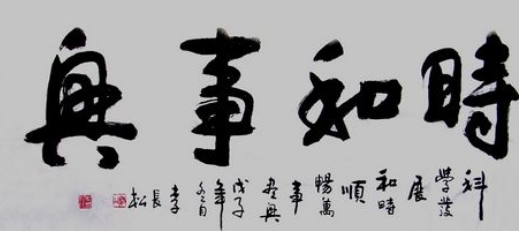 時和事興
科學發展和時順暢萬事盡興
戊子年冬日李長松